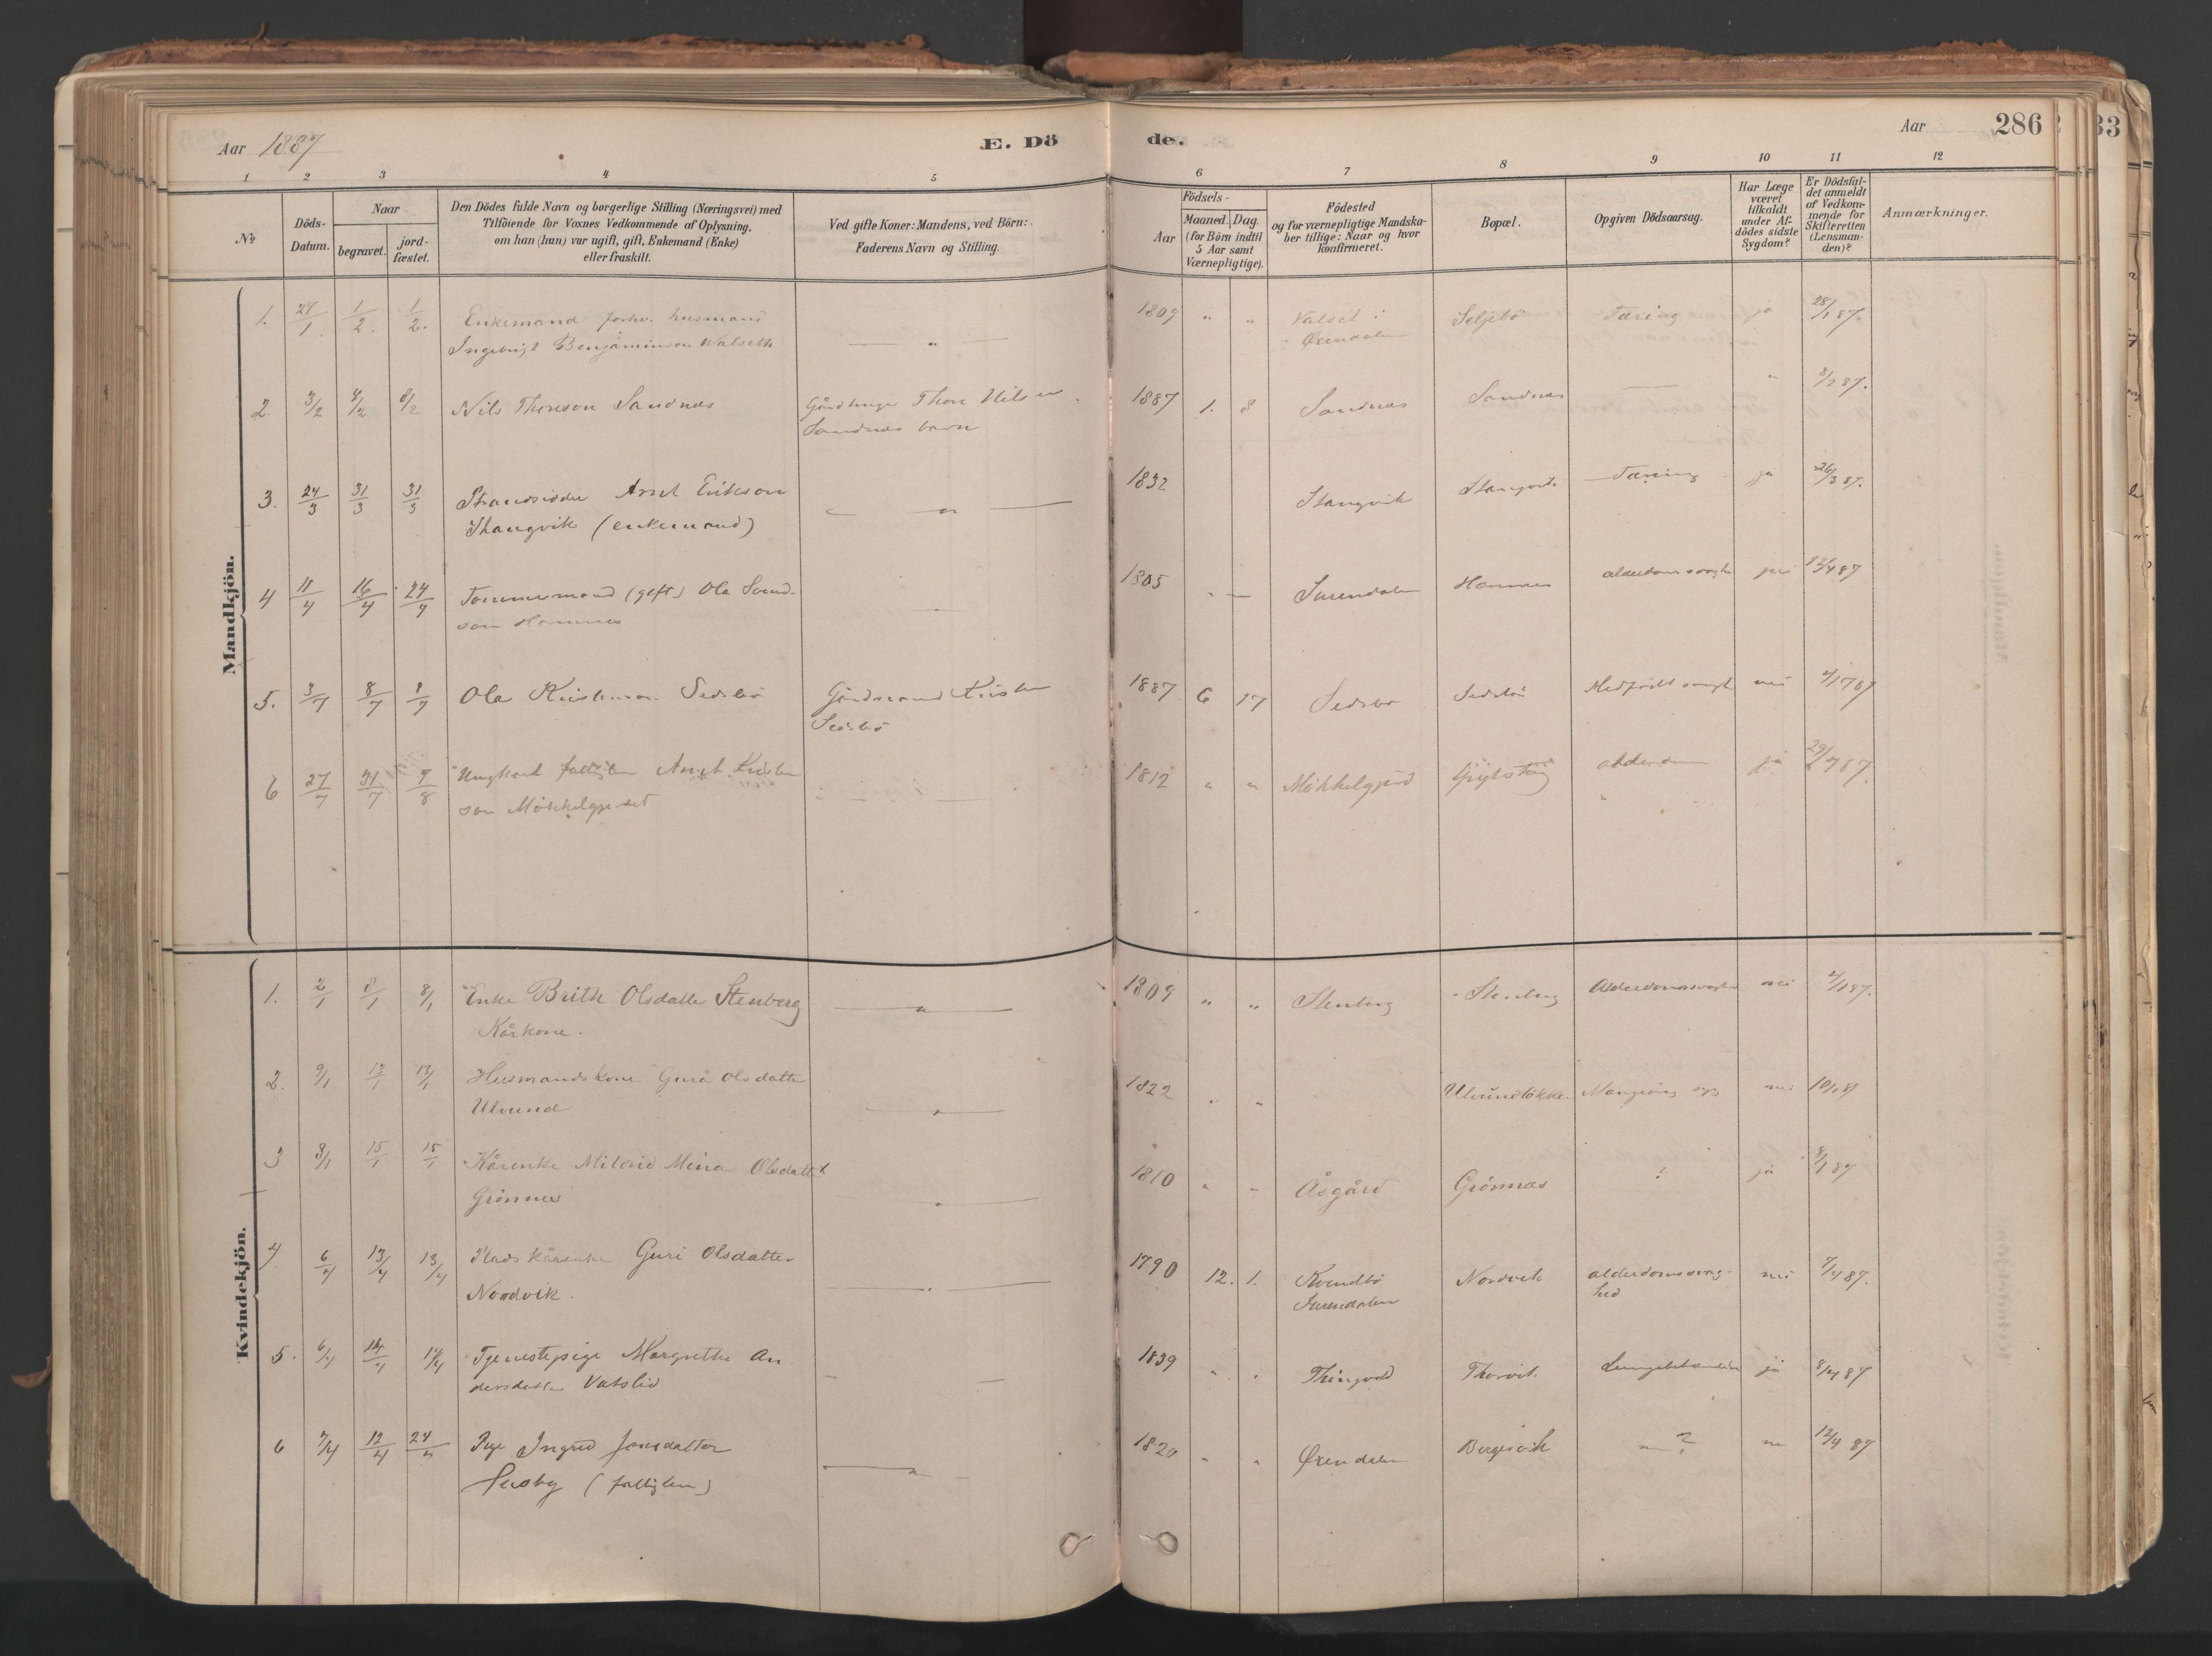 Aar 1887
E. Dö
de.
Aar
286
33
1 2 3 4 5 6 7 8 9 10 11 12
No
Döds-
Datum.
Naar
begravet.
jord-
fæstet.
Den Dödes fulde Navn og borgerlige Stilling (Næringsvei) med
Tilföiende for Voxnes Vedkommende af Oplysning,
om han (hun) var ugift, gift, Enkemand (Enke)
eller fraskilt.
Ved gifte Koner: Mandens, ved Börn:
Faderens Navn og Stilling.
Födsels-
Aar
Maaned. Dag.
(for Börn indtil
5 Aar samt
Værnepligtige).
Födested
og for værnepligtige Mandska-
ber tillige: Naar og hvor
konfirmeret.
Bopæl.
Opgiven Dödsaarsag.
Har Læge
været
tilkaldt
under Af-
dödes sidste
Sygdom?
Er Dödsfal-
det anmeldt
af Vedkom-
mende for
Skifteretten
(Lensman-
den)?
Anmærkninger.
Mandkjön.
1. 27/1 1/2 1/2 Enkemand forhv. husmand 1809 " " Valset i Seljebö Tæring ja 28/1 87.
Ingebrigt Benjaminson Walseth " Øxendalen
2. 3/2 8/2 8/2 Nils Thoreson Sandnæs Gårdbruger Thore Nilsen 1887 1. 8 Sandnæs Sandnæs " 8/2 87.
Sandnæs barn
3. 24/3 31/3 31/3 Strandsidder Arnt Erikson " 1832 Stangvik Stangvik Tæring ja 26/3 87.
Stangvik (enkemand)
4 11/4 16/4 24/4 Tømmermand (gift) Ola 1805 Surendalen Hamnes 12/4 87
son Hamnes
5. 3/7 8/7 8/7 Ola Sedsbö Gårdmand Kristen 1887 6 17 Sedsbö Sedsbö Medfödt nei 4/7 87
Sedsbö
6 27/7 31/7 7/8 Ungkarl 1812 " " Mökkelgjerd alderdom ja 29/7 87.
son
Kvindekjön.
1. 2/1 8/1 8/1 Enke Brith Olsdatter Stenberg " 1809 " " Stenberg Stenberg nei 4/1 87.
Kårkone.
2. 9/1 13/1 13/1 Husmandskone Gurå Olsdatter 1822 " " Ulvundlökke. nei 10/1 87
Ulvund "
3 3/1 15/1 15/1 Kårenke Mildrid Olsdatter 1810 " " Åsgård Grönnæs ? ja 8/1 87
Grönnes "
4 6/4 13/4 13/4 Plads kårenke Guri Olsdatter 1790 12. 1. Kvendbö Nordvik alderdomssvag- nei 7/4 87.
Nordvik. Surendalen hed
5. 6/4 14/4 14/4 Tjenestepige Margrethe An- 1839 " " Thingvold ja 8/4 87
dersdatter Vatslid
6 7/4 12/4 24/4 Pige Ingrid Jonsdatter " 1820 " " Øxendalen Bergsvik ? 12/4 87
Husby (fattiglem)